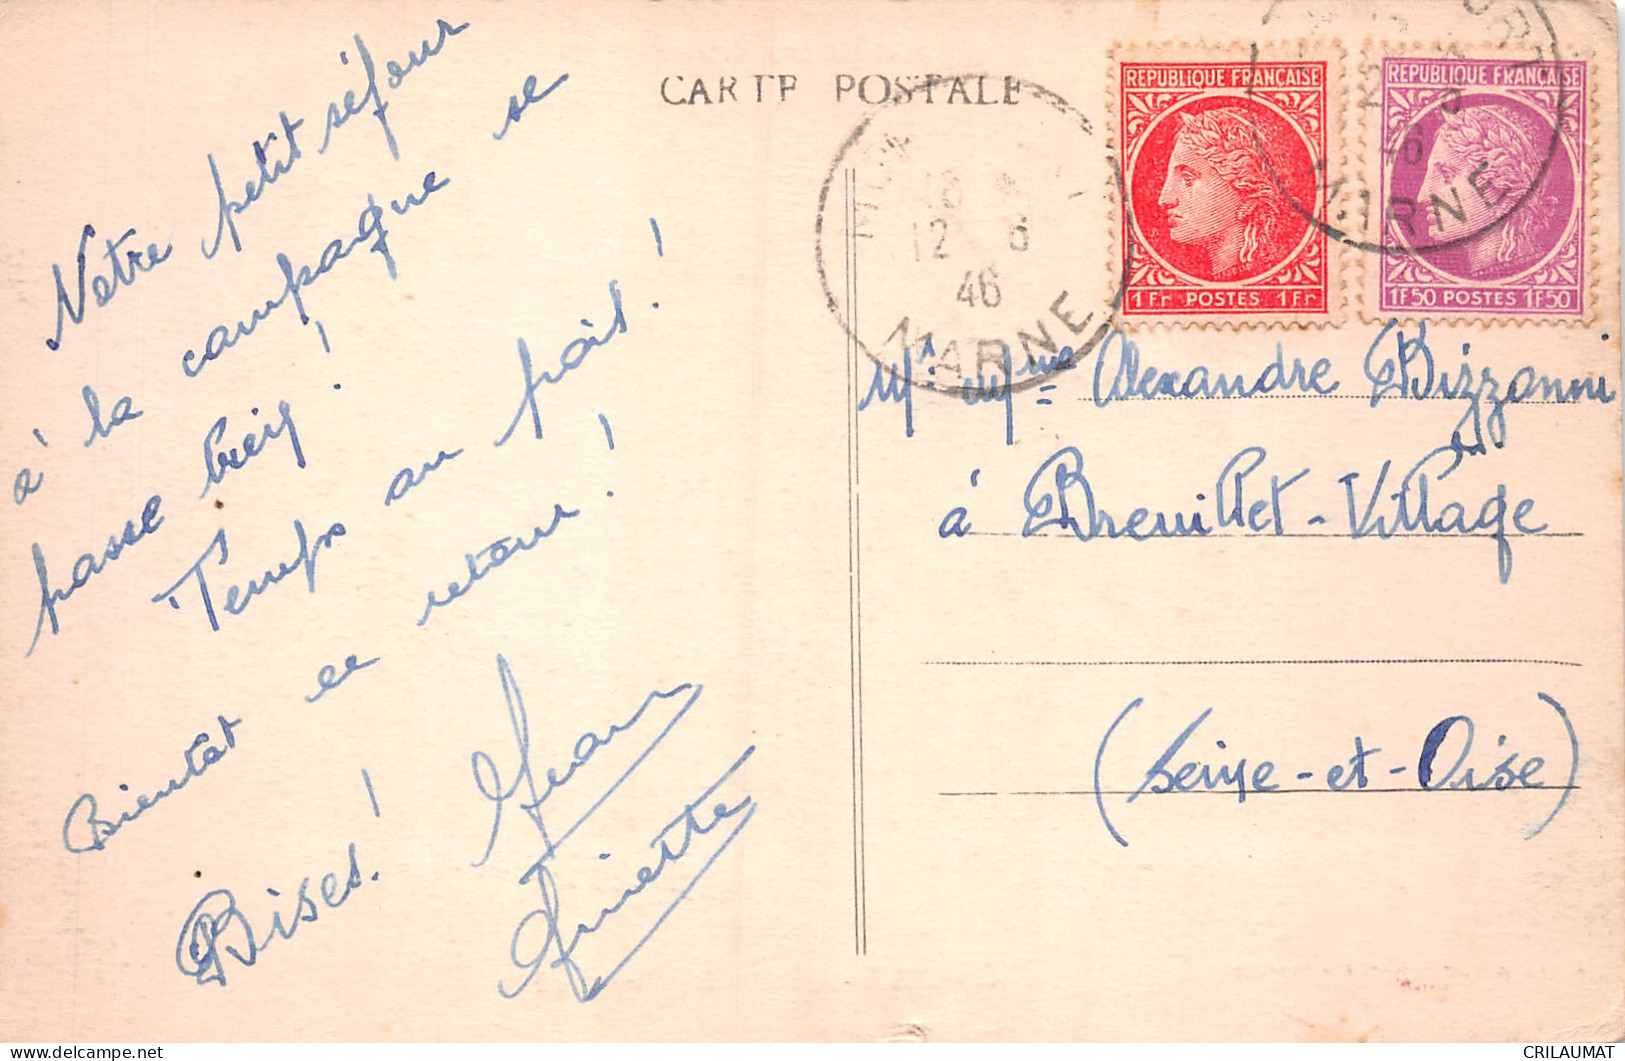 CARTE POSTALE
Notre petit séjour
à la campagne se
passe bien !
Temps au poil !
Bientôt ce
retour !
Bises !
Jean
Ginette
12 8
46
MARNE
REPUBLIQUE FRANÇAISE
1 Fr POSTES 1 Fr
REPUBLIQUE FRANÇAISE
1F50 POSTES 1F50
46
MARNE
Mr. et Mme Alexandre Bizzonni
à Breuillet-Village
(Seine-et-Oise)
CRILAUMAT